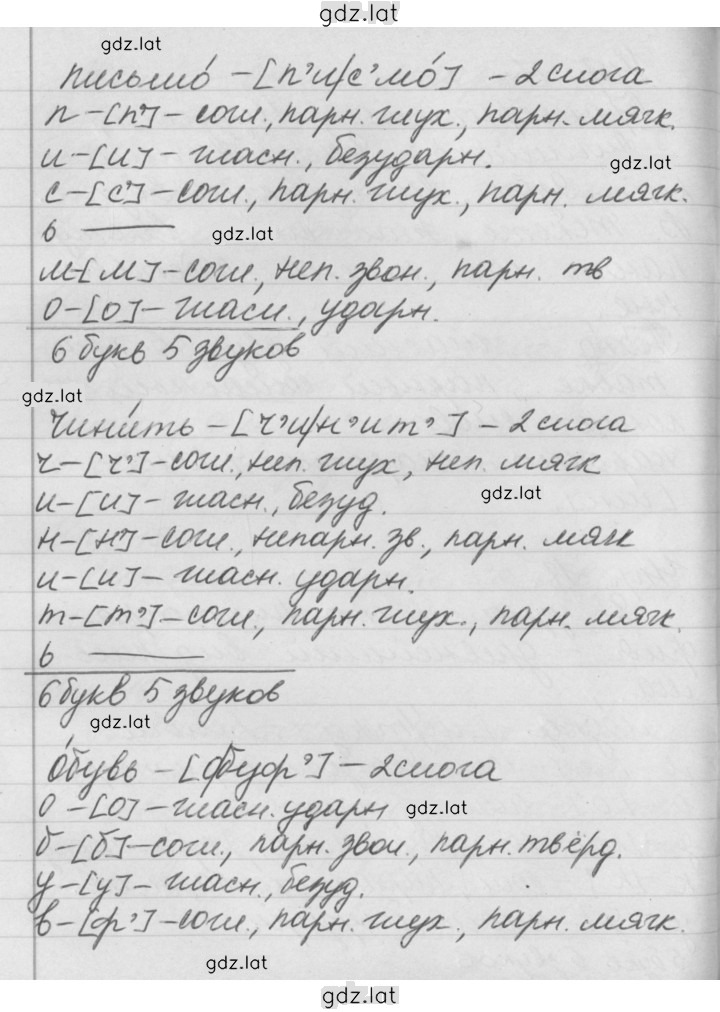 gdz.lat
gdz.lat
письмо́ – [п'и/с'мо́] – 2 слога
п – [п'] – согл., парн. глух., парн. мягк.
и – [и] – гласн., безударн.
gdz.lat
с – [с'] – согл., парн. глух., парн. мягк.
ь ——
gdz.lat
м – [м] – согл., неп. звон., парн. тв
о – [о] – гласн., ударн.
6 букв 5 звуков
gdz.lat
Чини́ть – [ч'и/н'ит'] – 2 слога
ч – [ч'] – согл., неп. глух, неп. мягк
и – [и] – гласн., безуд.
gdz.lat
н – [н'] – согл., непарн. зв., парн. мягк
и – [и] – гласн. ударн.
т – [т'] – согл., парн. глух., парн. мягк.
ь ——
6 букв 5 звуков
gdz.lat
о́бувь – [о/буф'] – 2 слога
о – [о] – гласн. ударн
gdz.lat
б – [б] – согл., парн. звон., парн. твёрд.
у – [у] – гласн., безуд.
в – [ф'] – согл., парн. глух., парн. мягк.
gdz.lat
gdz.lat